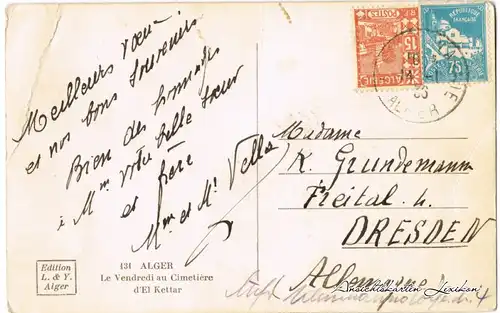 Meilleurs vœux
et nos bons souvenirs
Bien des hommages
à Mme votre belle sœur
et frère
Mme et Mr Vella
131 ALGER
Le Vendredi au Cimetière
d'El Kettar
Edition
L. & Y.
Alger
POSTES
15
ALGÉRIE
RÉPUBLIQUE
FRANÇAISE
75
ALGER
Madame
K. Grundemann
Freital b.
DRESDEN
Allemagne
Ansichtskarten-Lexikon